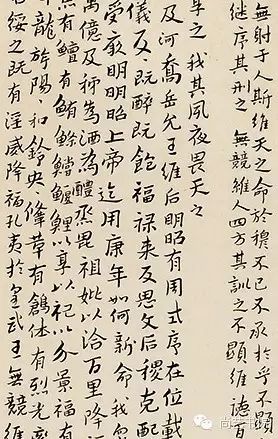 無射于人斯維天之命於穆不已不承於乎不顯
继序其刑之 無競維人四方其訓之不顯維德百
之 我其夙夜畏天之
及河喬岳允王維后明昭有周式序在位載
儀反〻既醉既飽福禄来反思文后稷克配
受厥明明昭上帝迄用康年如何新命我
萬億及秭為酒為醴烝畀祖妣以洽百里降
魚有鱣有鮪鰷鱨鰋鯉以享以祀以介景福有
龍旂陽〻和鈴央〻鞗革有鶬休有烈光
綏之既有淫威降福孔夷於皇武王無競維